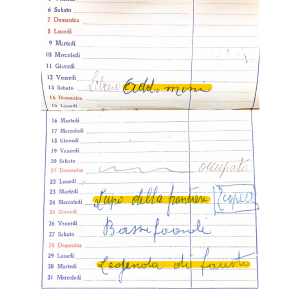 6 Sabato
7 Domenica
8 Lunedì
9 Martedì
10 Mercoledì
11 Giovedì
12 Venerdì
13 Sabato Libero Add. mini
14 Domenica
15 Lunedì
16 Martedì
17 Mercoledì
18 Giovedì
19 Venerdì
20 Sabato
21 Domenica occupato
22 Lunedì
23 Martedì
24 Mercoledì Lupo della frontiera
25 Giovedì
26 Venerdì
27 Sabato Bassifondi
28 Domenica
29 Lunedì
30 Martedì Leggenda di Fausto
31 Mercoledì